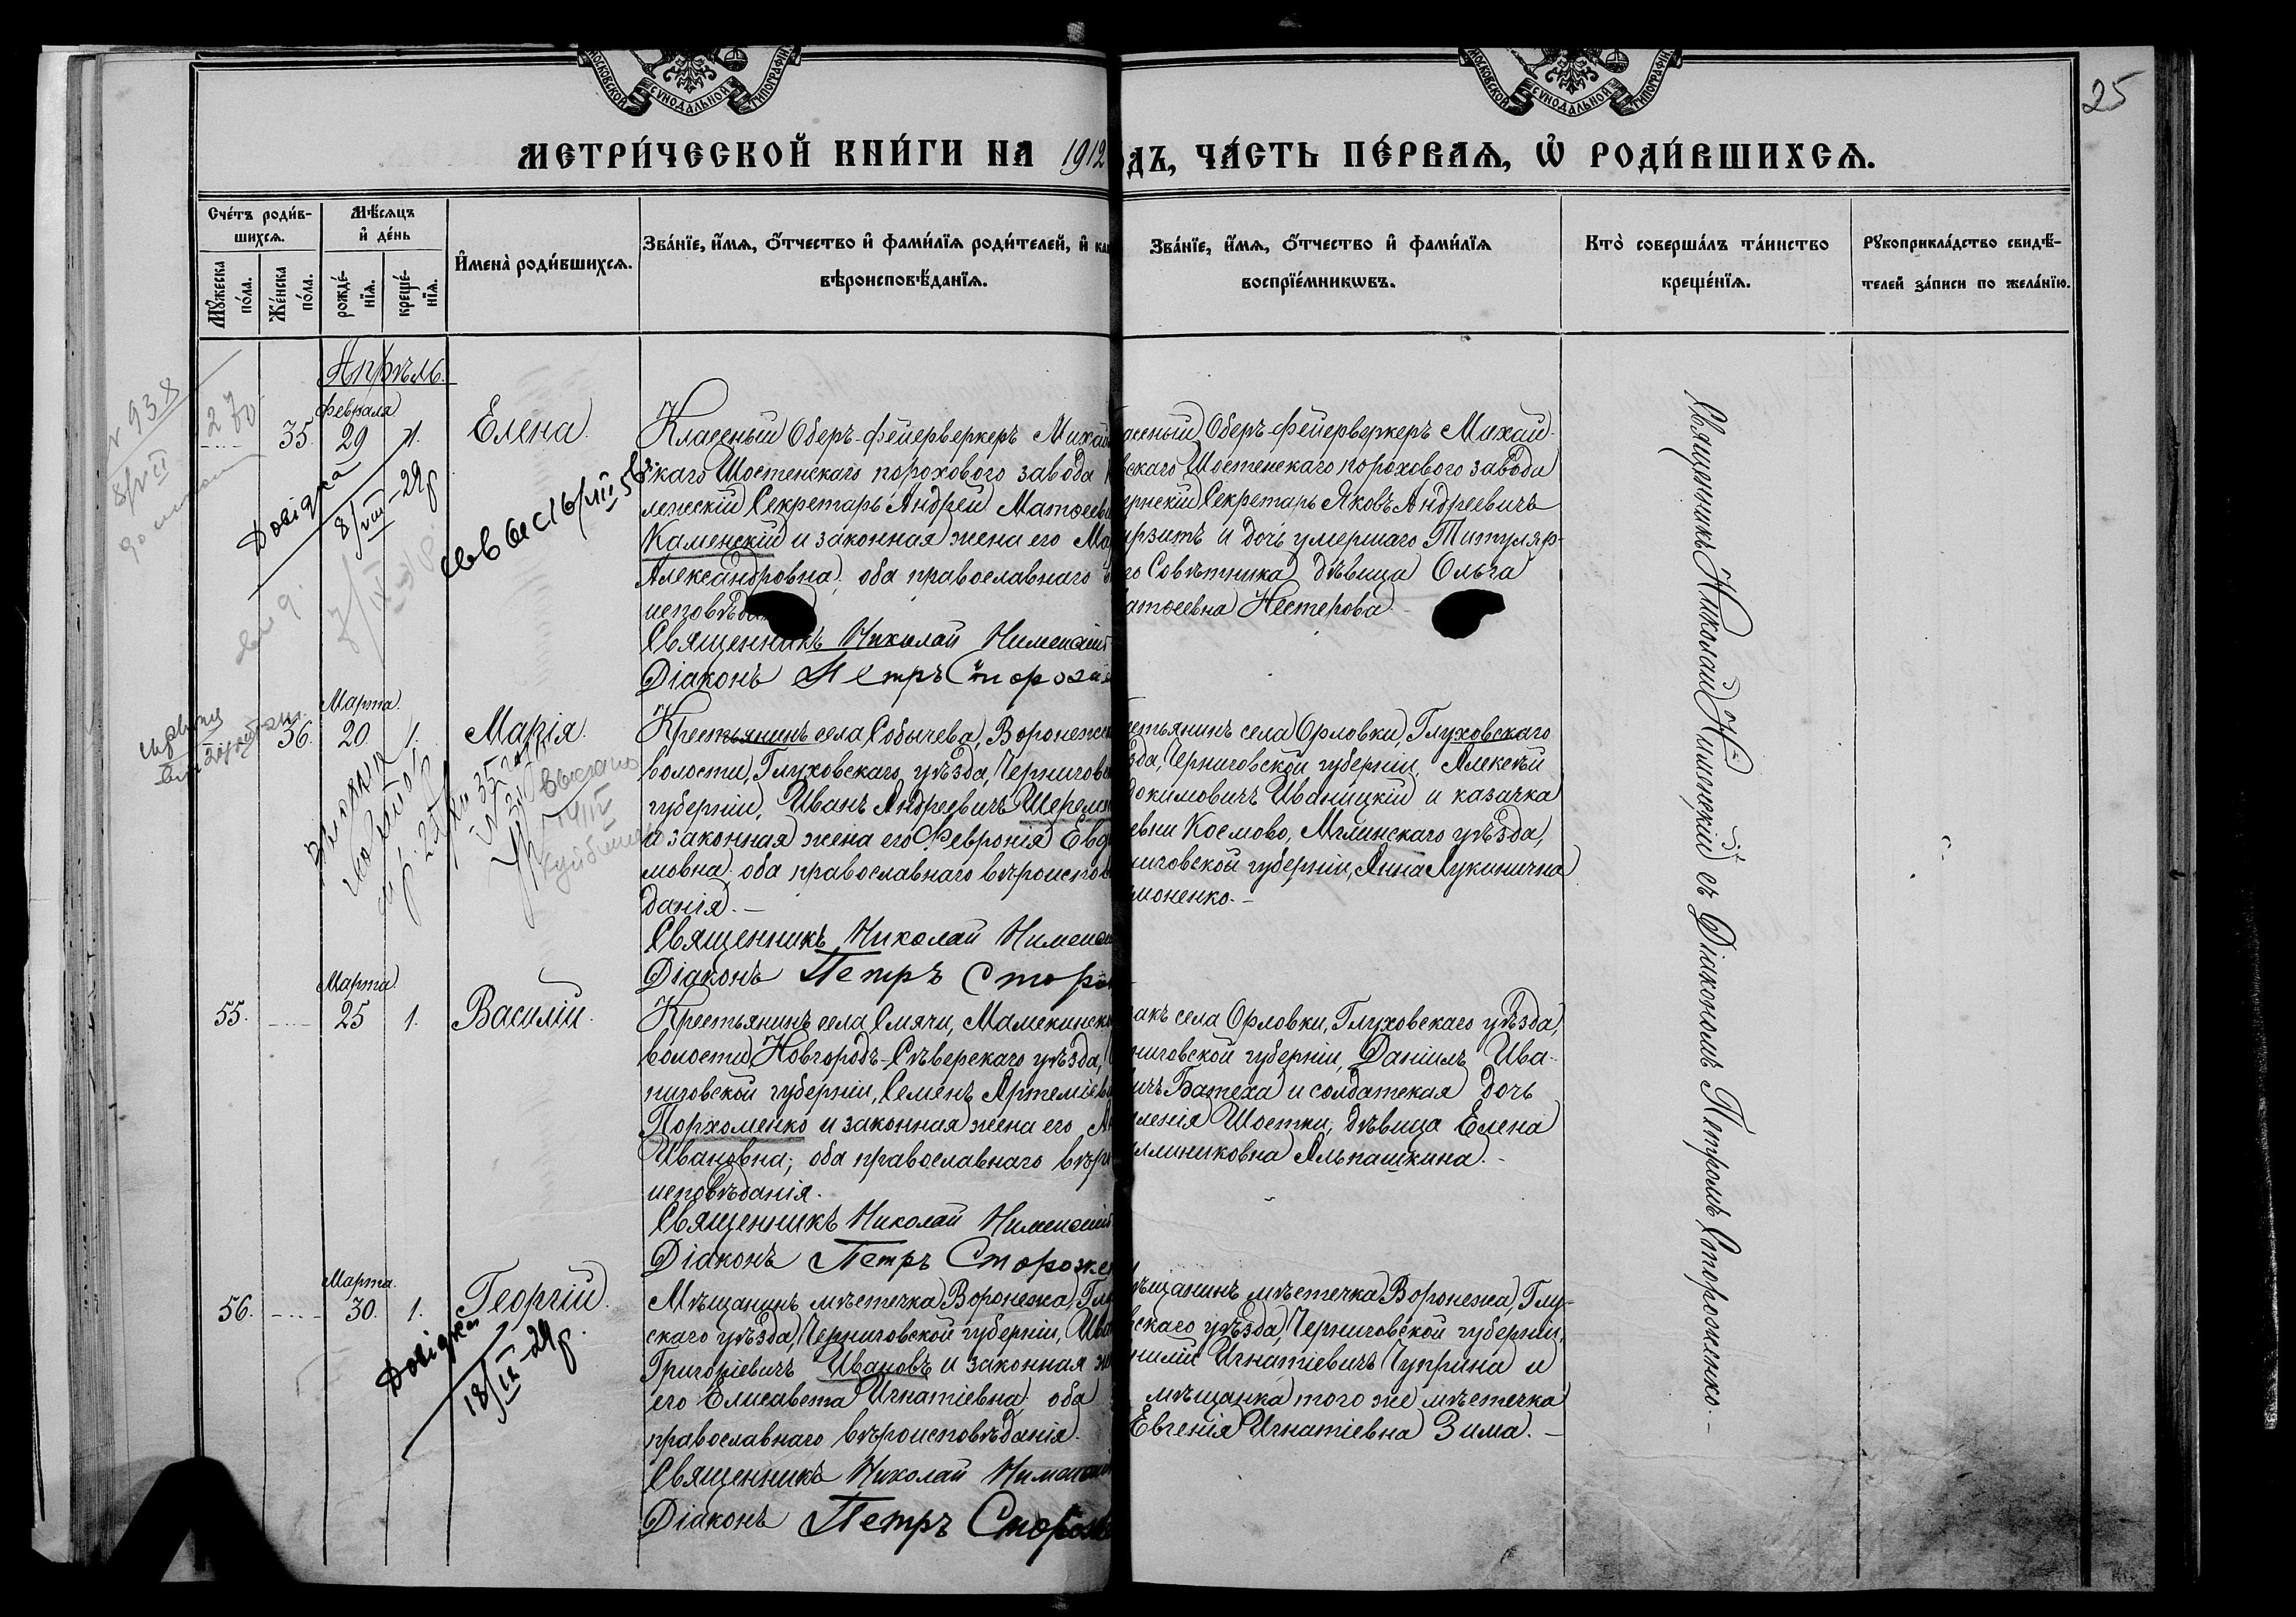 25
МОСКОВСКОЙ СѴНОДАЛЬНОЙ ТИПОГРАФІИ
МОСКОВСКОЙ СѴНОДАЛЬНОЙ ТИПОГРАФІИ
МЕТРИ́ЧЕСКОЙ КНИ́ГИ НА 1912
ДЪ, ЧА́СТЬ ПЕ́РВАѦ, Ѡ҆ РОДИ́ВШИХСѦ.
Сче́тъ роди́в-
шихсѧ.
Мꙋ́жеска по́ла.
Же́нска по́ла.
Мѣ́сѧцъ
и҆ де́нь
рожде́-
нїѧ.
креще́-
нїѧ.
И҆мена̀ роди́вшихсѧ.
Зва́нїе, и҆́мѧ, ѻ҆́тчество и҆ фами́лїѧ роди́телей, и҆ как
вѣроисповѣ́данїѧ.
Зва́нїе, и҆́мѧ, ѻ҆́тчество и҆ фами́лїѧ
воспрїе́мникѡвъ.
Кто̀ соверша́лъ та́инство
креще́нїѧ.
Рꙋкоприкла́дство свидѣ́-
телей за́писи по жела́нїю.
Апрѣль.
Февраля
35. 29 1. Елена.
Класный Оберъ-фейерверкеръ Михай
скаго Шостенскаго порохового завода
лежскій Секретарь Андрей Матѳееви
Каменскій и законная жена его Ма
Александровна; оба православнаго
исповѣда
Священникъ Николай Нименскій
Діаконъ Петръ Сторож
асный Оберъ-фейерверкеръ Михай-
вскаго Шостенскаго порохового завода
ернскій Секретарь Яковъ Андреевичъ
рзитъ и дочь умершаго Титуляр-
го Совѣтника дѣвица Ольга
атѳеевна Нестерова
Довідка
8/VIII-29р
Марта.
36. 20. 1. Марія.
Крестьянинъ села Собычева, Воронежс
волости, Глуховскаго уѣзда, Чернигов
губерніи, Иванъ Андреевичъ Шереме
и законная жена его Феврония Евд
мовна; оба православнаго вѣроиспов
данія.—
Священникъ Николай Нименск
Діаконъ Петръ Сторо
стьянинъ села Орловки, Глуховскаго
зда, Черниговской губерніи, Алексѣй
докимовичъ Иваницкій и казачка
евни Космово, Мглинскаго уѣзда,
ниговской губерніи, Анна Лукинична
моненко.—
Марта
55. 25 1. Василій.
Крестьянинъ села Смячи, Мамекинск
волости, Новгородъ-Сѣверскаго уѣзда,
ниговской губерніи, Семенъ Артеміев
Порхоменко и законная жена его А
Ивановна; оба православнаго вѣро
исповѣданія.
Священникъ Николай Нименскій
Діаконъ Петръ Стороже
закъ села Орловки, Глуховскаго уѣзда,
ниговской губерніи, Даніилъ Ива-
ичъ Батеха и солдатская дочь
ленія Шостки, дѣвица Елена
ллиниковна Альпашкина.—
Марта.
56. 30. 1. Георгій.
Мѣщанинъ мѣстечка Воронежа, Глу
скаго уѣзда, Черниговской губерніи, Ива
Григоріевичъ Ивановъ и законная же
его Елисавета Игнатіевна; оба
православнаго вѣроисповѣданія.
Священникъ Николай Нименскій
Діаконъ Петръ Сторож
ѣщанинъ мѣстечка Воронежа, Глу-
вскаго уѣзда, Черниговской губерніи,
нилій Игнатіевичъ Чуприна и
мѣщанка того же мѣстечка
Евгенія Игнатіевна Зима.—
Довідка
18/IX-29р.
Священникъ Николай Нименскій съ Діакономъ Петромъ Стороженко—